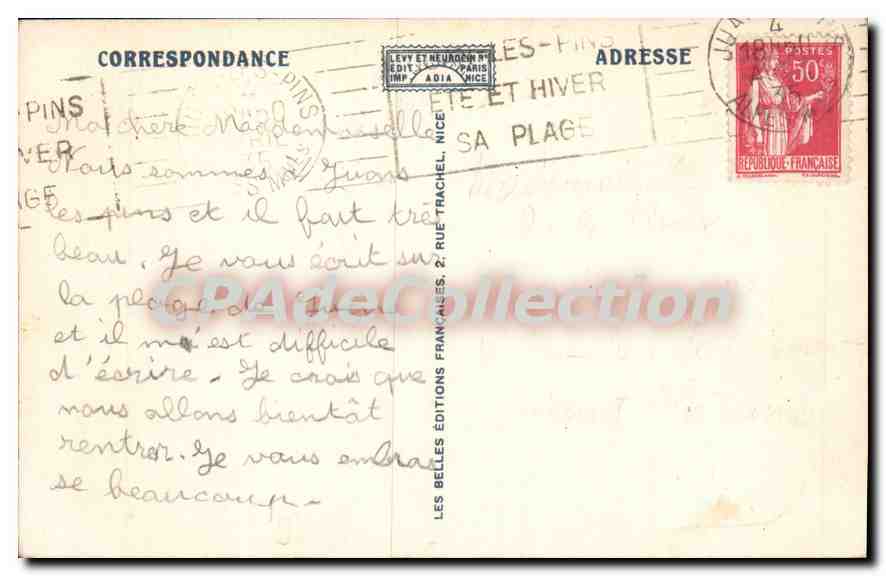 CORRESPONDANCE
LEVY ET NEURDEIN RS
EDIT PARIS
IMP ADIA NICE
ADRESSE
-PINS
VER
AGE
LES-PINS
ÉTÉ ET HIVER
SA PLAGE
POSTES
50c
REPUBLIQUE-FRANÇAISE
Ma chère Mademoiselle
Nous sommes à Juans
les pins et il fait très
beau. Je vous écrit sur
la plage de Juan
et il m'est difficile
d'écrire. Je crois que
nous allons bientôt
rentrer. Je vous embras
se beaucoup-
LES BELLES ÉDITIONS FRANÇAISES, 2, RUE TRACHEL, NICE
CPAdeCollection